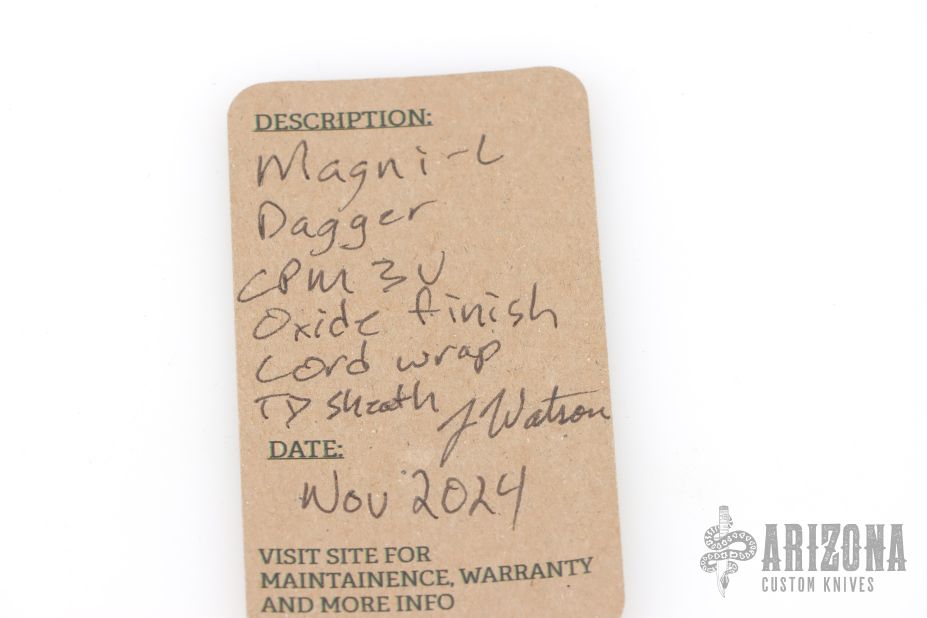 DESCRIPTION:
Magni-L
Dagger
CPM 3V
Oxide finish
Cord wrap
TD Sheath J Watson
DATE:
Nov 2024
VISIT SITE FOR
MAINTAINENCE, WARRANTY
AND MORE INFO
ARIZONA
CUSTOM KNIVES